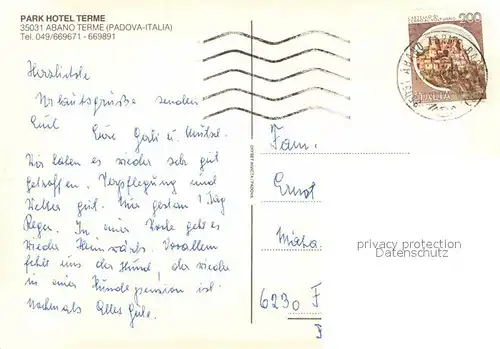 PARK HOTEL TERME
35031 ABANO TERME (PADOVA-ITALIA)
Tel. 049/669671 - 669891
Herzlichste
Urlaubsgrüße senden
Euch
Eure Gerti u. Mutsch.
Wir haben es wieder sehr gut
getroffen. Verpflegung und
Wetter gut. Nur gestern 1 Tag
Regen. In einer Woche geht es
wieder Heimwärts. Vorallem
fehlt uns der Hund, der wieder
in einer Hundepension ist.
Nochmals Alles Gute.
Fam.
Ernst
6230 F
200
ITALIA
ABANO TERME
privacy protection
Datenschutz